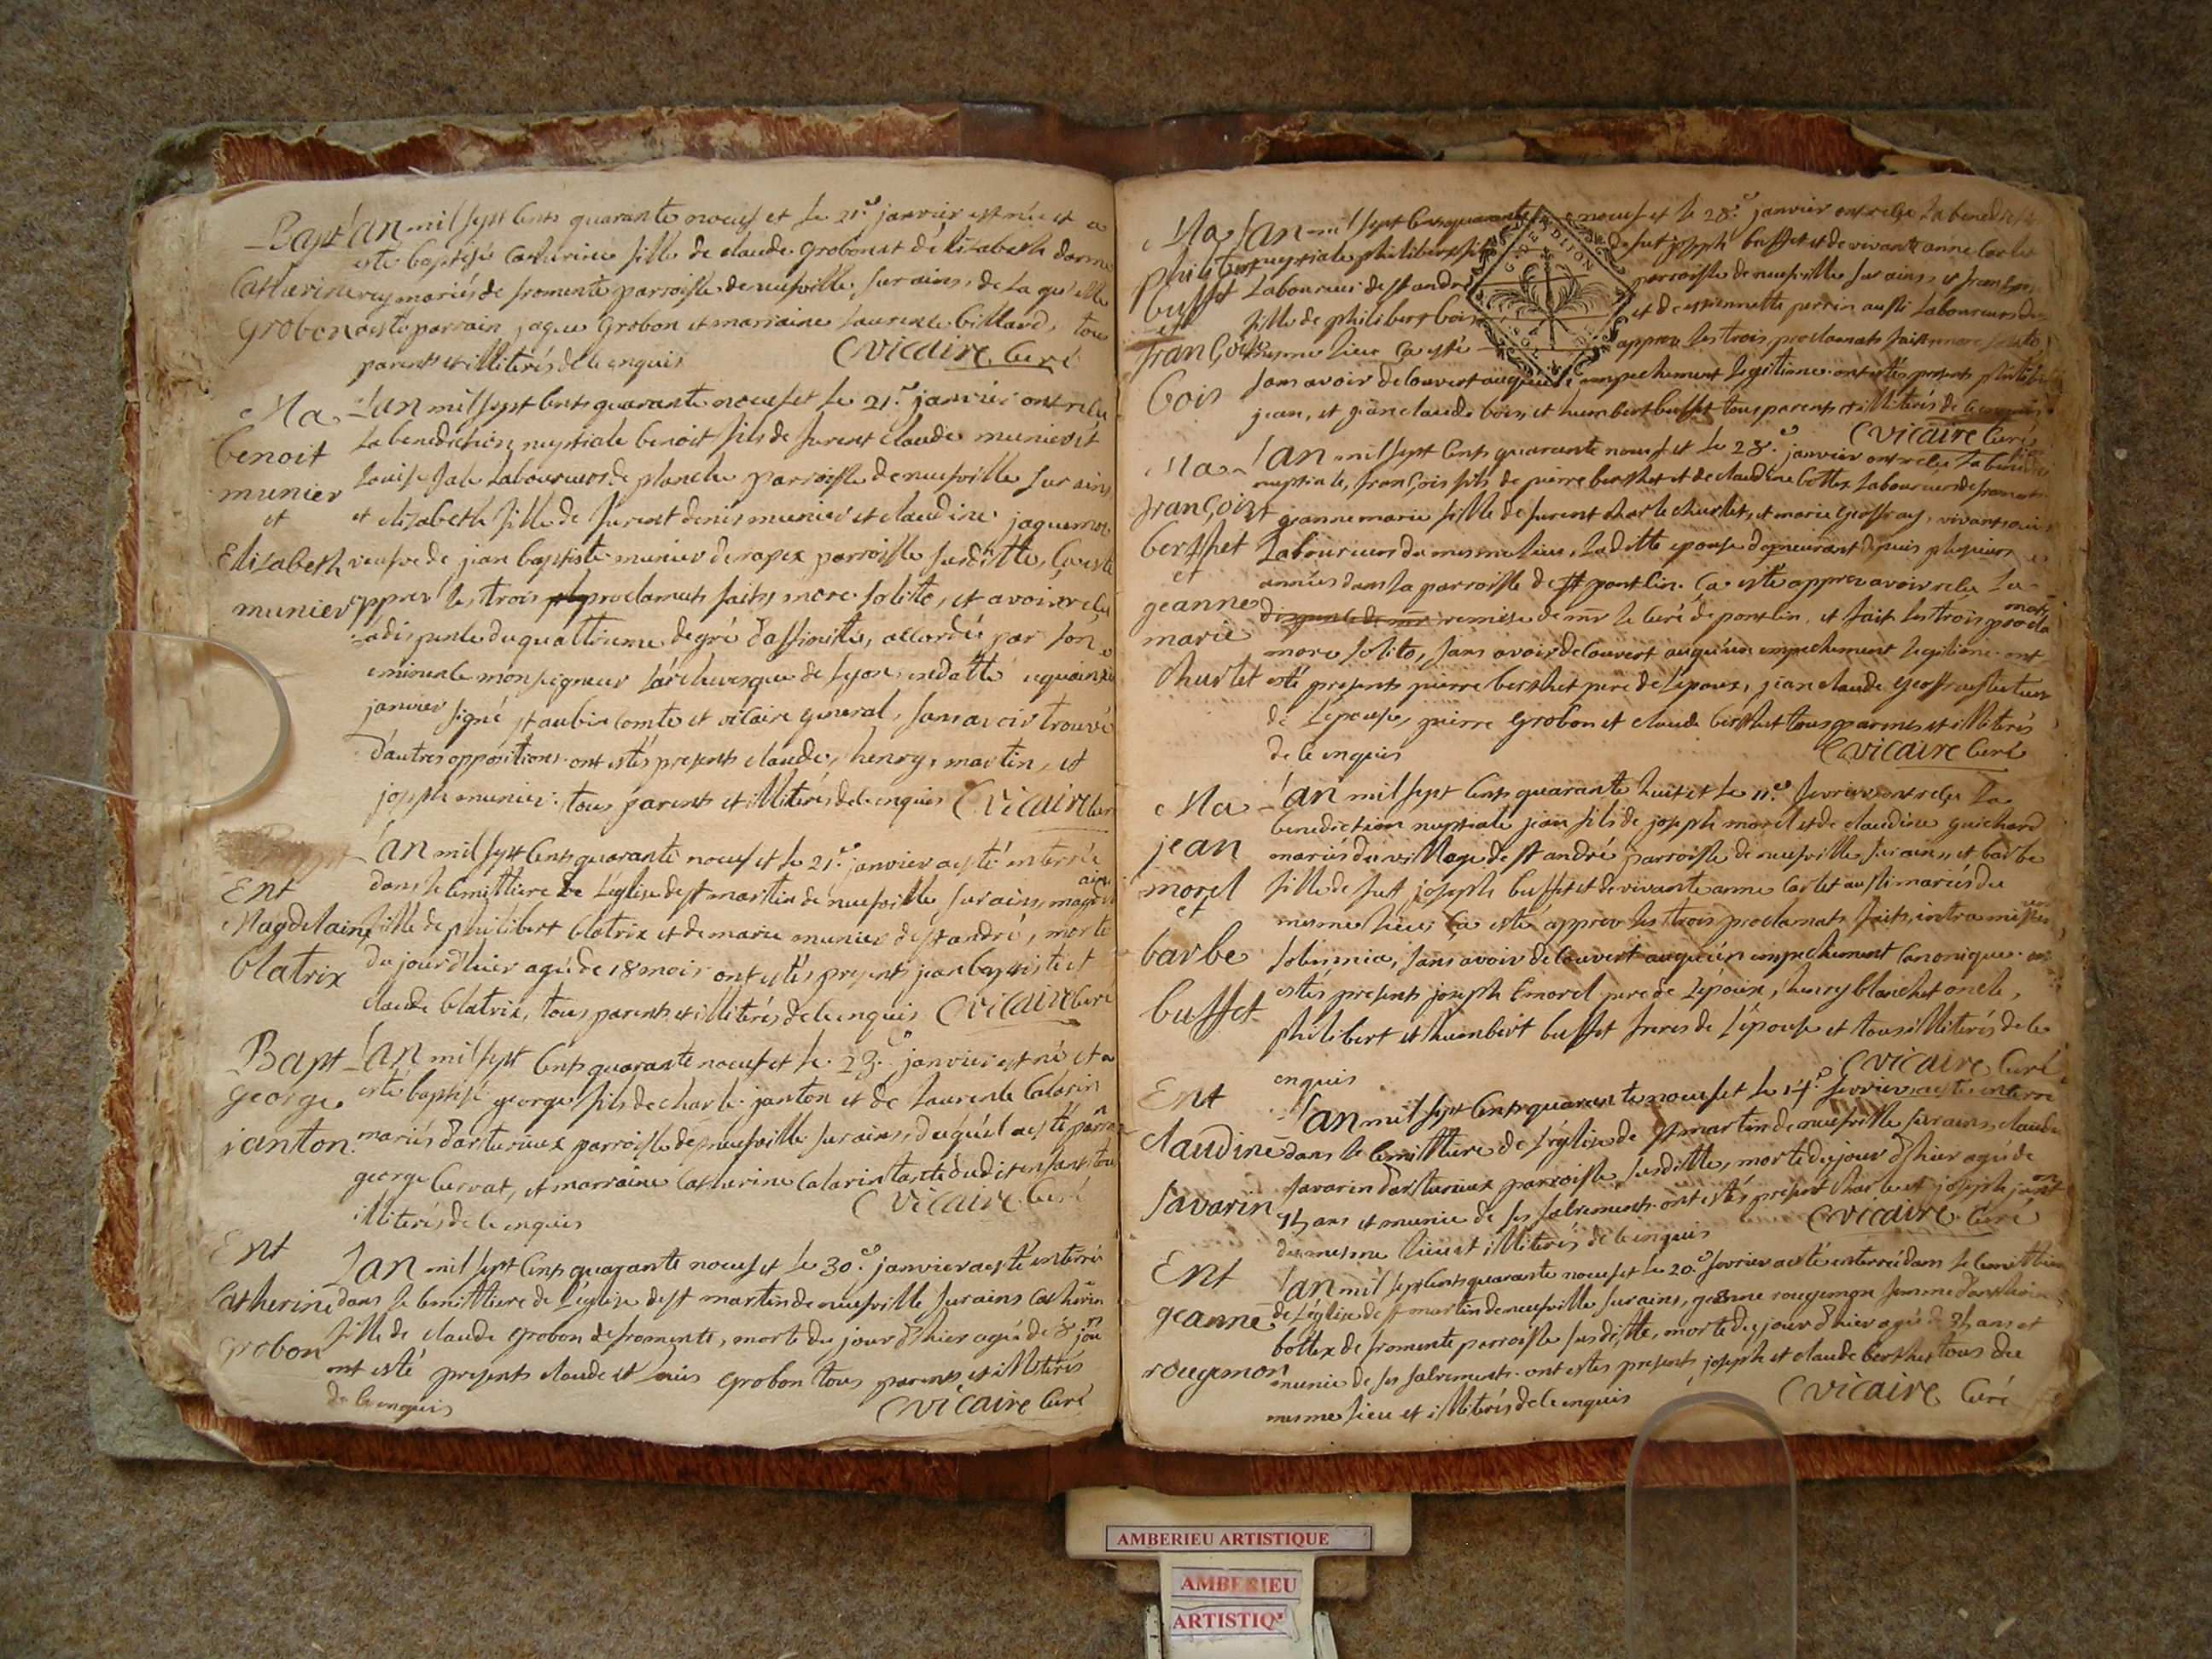 Bapt
Catherine
grobon
L'an mil sept cents quarante noeuf et le 21e janvier est née et a
esté baptisé Catherine fille de claude grobon et d'élizabeth dorme
mariés de fromente parroisse de neufville sur ains, de la quelle
a esté parrain jaque Grobon et marraine laurence billard, tous
parents et illiterés de ce enquis Cvicaire Curé
Ma
benoit
munier
et
Elizabeth
munier
L'an mil sept cents quarante noeuf et le 21e janvier ont reçu
la benediction nuptiale benoit fils de furent claude munier et
Louise laboureurs de planche parroisse de neufville sur ains
et elizabeth fille de furent denis munier et claudine jaquemot
veufve de jean baptiste munier de rapex parroisse susditte, Ça esté
apprex les trois proclamats faits more solito, et avoir reçu
la dispense du quattrieme degré d'affinitté, accordée par son
eminence monseigneur l'archevesque de lyon, en datte quinze
janvier signé st aubin comte et vicaire general, sans avoir trouvé
d'autres oppositions. ont estés presents claude, henry, martin, et
joseph munier. tous parents et illiterés de ce enquis Cvicaire Curé
Ent
Magdelaine
blatrix
L'an mil sept cents quarante noeuf et le 21e janvier a esté enterrée
dans le cemittiere de l'église de st martin de neufville sur ains, magdelaine
fille de philibert blatrix et de marie munier de st andré, morte
du jour d'hier agée de 18 mois ont estés present jean baptiste et
claude blatrix, tous parents et illiterés de ce enquis Cvicaire Curé
Bapt
george
janton
L'an mil sept cents quarante noeuf et le 23e janvier est né et a
esté baptisé george fils de charle janton et de laurence Calarin
mariés d'arturieux parroisse de neufville sur ains, du quel a esté parrain
george Cervat, et marraine Catherine Calarin tante dudit enfant tous
illiterés de ce enquis Cvicaire Curé
Ent
Catherine
grobon
L'an mil sept cents quarante noeuf et le 30e janvier a esté enterré
dans le cemittiere de l'église de st martin de neufville sur ains Catherine
fille de claude grobon de fromente, morte du jour d'hier agée de 8 jours
ont esté presents claude et grobon tous parents et illiterés
de ce enquis Cvicaire Curé
Ma
philibert
buffet
et
françoise
bois
L'an mil sept cents quarante noeuf et le 28e janvier ont reçu la benediction
nuptiale philibert fils de fut joseph buffet et de vivante anne Carlet
Laboureurs de st andré parroisse de neufville sur ains et françoise
fille de philibert bois et de estiennette perrin aussi Laboureurs du
mesme lieu Ça esté apprex les trois proclamats faits more solito
sans avoir decouvert auqueun empechement legitime. ont estés presents philibert
jean, et jean claude bois, et humbert buffet tous parents et illiterés de ce enquis
Cvicaire Curé
Ma
françois
berthet
et
jeanne
marie
churlet
L'an mil sept cents quarante noeuf et le 28e janvier ont reçu la benediction
nuptiale, françois fils de pierre berthet et de claudine bottex Laboureurs de fromente
et jeanne marie fille de furent charle churlet, et marie geoffray, vivants
Laboureurs du mesme lieu, laditte epouse demeurant depuis plusieurs
années dans la parroisse de pontlin. Ça esté apprex avoir reçu la
remise de mr le curé de pontlin, et fait les trois proclamats
more solito, sans avoir decouvert auqueun empechement legitime. ont
esté presents pierre berthet pere de l'epoux, jean claude geoffray tuteur
de l'epouse, pierre grobon et claude berthet tous parents et illiterés
de ce enquis Cvicaire Curé
Ma
jean
morel
et
barbe
buffet
L'an mil sept cents quarante huit et le 11e fevrier ont reçu la
benediction nuptiale jean fils de joseph morel et de claudine guichard
mariés du village de st andré parroisse de neufville sur ains, et barbe
fille de fut joseph buffet et de vivante anne Carlet aussi mariés du
mesme lieu, Ça esté apprex les trois proclamats faits, intra missarum
solemnia, sans avoir decouvert auqueun empechement canonique. ont
estés presents joseph morel pere de l'epoux, henry blanchet oncle,
philibert et humbert buffet freres de l'epouse et tous illiterés de ce
enquis Cvicaire Curé
Ent
claudine
Savarin
L'an mil sept cents quarante noeuf et le 17e fevrier a esté enterré
dans le cemittiere de l'église de st martin de neufville sur ains claudine
savarin d'arturieux parroisse susditte, morte du jour d'hier agée de
ans et munie de ses sacrements. ont estés present charle et joseph janton
du mesme lieu et illiterés de ce enquis Cvicaire Curé
Ent
jeanne
rougemon
L'an mil sept cents quarante noeuf et le 20e fevrier a esté enterré dans le cemittiere
de l'église de st martin de neufville sur ains, jeanne rougemon femme d'anthoine
bottex de fromente parroisse susditte, morte du jour d'hier agée ans et
munie de ses sacrements. ont estés presents joseph et claude berthet tous du
mesme lieu et illiterés de ce enquis Cvicaire Curé
AMBERIEU ARTISTIQUE
AMBERIEU
ARTISTIQ